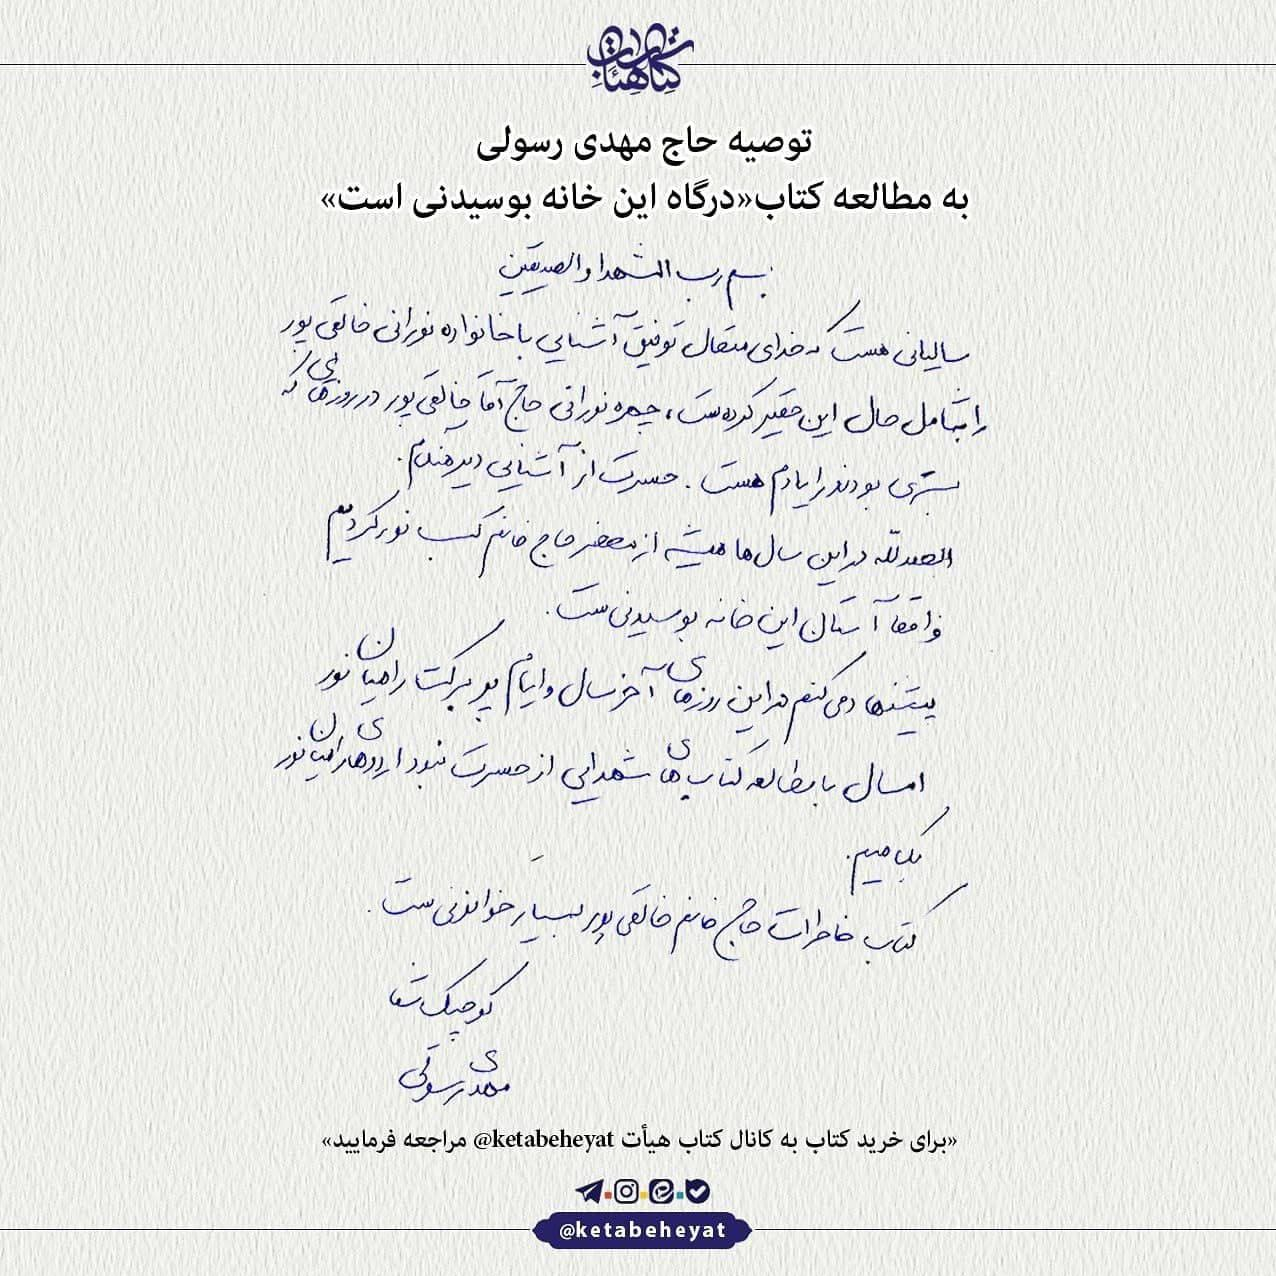 کتاب هیأت
توصیه حاج مهدی رسولی
به مطالعه کتاب «درگاه این خانه بوسیدنی است»
بسم رب الشهدا و الصدیقین
سالیانی هست که خدای متعال توفیق آشنایی با خانواده نورانی خالقی پور
را شامل حال این حقیر کرده‌ست، چهره نورانی حاج آقا خالقی پور در روزهای که
بستری بودند را یادم هست. حسرت از آشنایی دیرهنگام.
الحمدلله در این سال‌ها همیشه از محضر حاج خانم کسب نور کردیم
واقعاً آستان این خانه بوسیدنی ست.
پیشنهاد می‌کنم در این روزهای آخر سال و ایام پر برکت راهیان نور
امسال با مطالعه کتاب‌های شهدایی از حسرت نبود اردوهای راهیان نور
بکاهیم.
کتاب خاطرات حاج خانم خالقی پور بسیار خواندنی ست.
کوچیک شما
مهدی رسولی
«برای خرید کتاب به کانال کتاب هیأت ketabeheyat@ مراجعه فرمایید»
@ketabeheyat